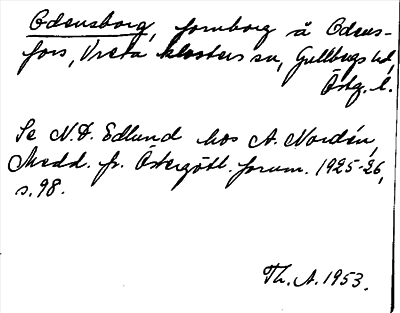 Odensborg, fornborg å Odens-
fors, Vreta klosters sn, Gullbergs hd,
Östg. l.
Se N. D. Edlund hos A. Nordén,
Medd. fr. Östergötl. fornm. 1925-26,
s. 98.
Th. A. 1953.